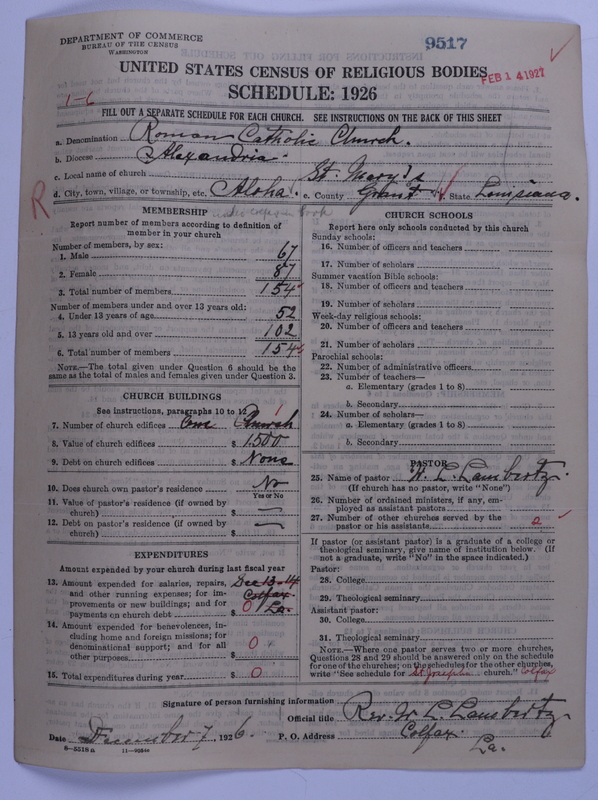 DEPARTMENT OF COMMERCE
BUREAU OF THE CENSUS
WASHINGTON
9517
UNITED STATES CENSUS OF RELIGIOUS BODIES
FEB 14 1927
SCHEDULE: 1926
1-6
FILL OUT A SEPARATE SCHEDULE FOR EACH CHURCH. SEE INSTRUCTIONS ON THE BACK OF THIS SHEET
a. Denomination Roman Catholic Church.
b. Diocese Alexandria
c. Local name of church St. Mary's
R
d. City, town, village, or township, etc. Aloha. e. County Grant f. State Louisiana.
MEMBERSHIP
Report number of members according to definition of
member in your church
Number of members, by sex:
1. Male 67
2. Female 87
3. Total number of members 154
Number of members under and over 13 years old:
4. Under 13 years of age 52
5. 13 years old and over 102
6. Total number of members 154
NOTE.—The total given under Question 6 should be the
same as the total of males and females given under Question 3.
CHURCH BUILDINGS
See instructions, paragraphs 10 to 12
1
7. Number of church edifices One Church
8. Value of church edifices $ 1500
9. Debt on church edifices $ None
10. Does church own pastor's residence No
Yes or No
11. Value of pastor's residence (if owned by
church) $ —
12. Debt on pastor's residence (if owned by
church) $ —
EXPENDITURES
Amount expended by your church during last fiscal year
13. Amount expended for salaries, repairs,
and other running expenses; for im-
provements or new buildings; and for
payments on church debt $ 0
See 13-14
Colfax
La.
14. Amount expended for benevolences, in-
cluding home and foreign missions; for
denominational support; and for all
other purposes $ 0
15. Total expenditures during year $ 0
CHURCH SCHOOLS
Report here only schools conducted by this church
Sunday schools:
16. Number of officers and teachers
17. Number of scholars
Summer vacation Bible schools:
18. Number of officers and teachers
19. Number of scholars
Week-day religious schools:
20. Number of officers and teachers
21. Number of scholars
Parochial schools:
22. Number of administrative officers
23. Number of teachers—
a. Elementary (grades 1 to 8)
b. Secondary
24. Number of scholars—
a. Elementary (grades 1 to 8)
b. Secondary $
PASTOR
25. Name of pastor W. L. Lambertz.
(If church has no pastor, write "None")
26. Number of ordained ministers, if any, em-
ployed as assistant pastors
27. Number of other churches served by the
pastor or his assistants 2
If pastor (or assistant pastor) is a graduate of a college or
theological seminary, give name of institution below. (If
not a graduate, write "No" in the space indicated.)
Pastor:
28. College
29. Theological seminary
Assistant pastor:
30. College
31. Theological seminary
NOTE.—Where one pastor serves two or more churches,
Questions 28 and 29 should be answered only on the schedule
for one of the churches; on the schedules for the other churches,
write "See schedule for St Josephs church." Colfax
Signature of person furnishing information
Official title Rev. W. L. Lambertz.
Date December 7, 1926. P. O. Address Colfax.
La.
8—5518 a